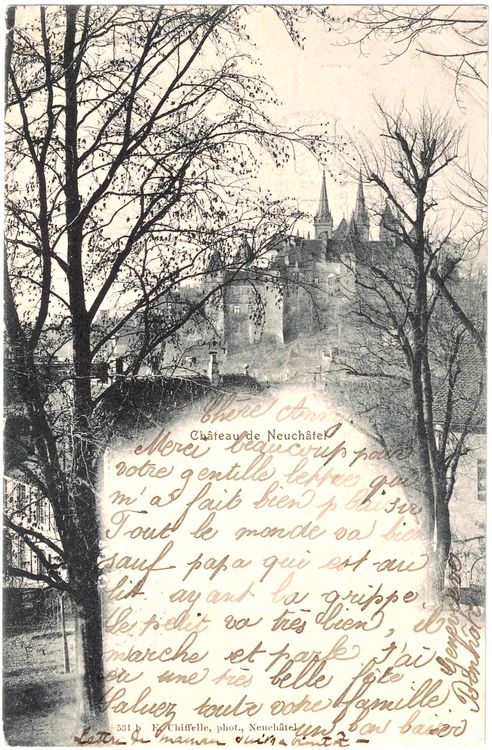 Chère Anny
Château de Neuchâtel
Merci beaucoup pour
votre gentille lettre qui
m'a fait bien plaisir
Tout le monde va bien
sauf papa qui est au
lit ayant la grippe.
Le petit va très bien, il
marche et parle j'ai
eu une très belle fête
Saluez toute votre famille
un bon baiser
Geneviève
531 E. Chiffelle, phot., Neuchâtel
Lettre de maman